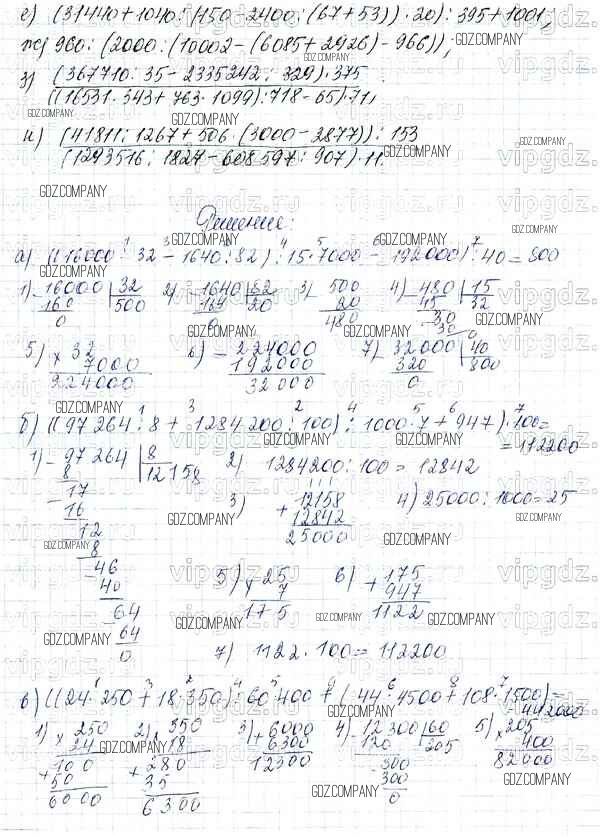 е) (31440+1040:(150-2400:(67+53))·20):395+1001;
ж) 960:(2000:(10002-(6085+2926)-966));
з) (367710:35-2335242:329)·375
((16531·343+763·1099):718-65)·71;
и) (41811:1267+506·(3000-2877)):153
(1293516:1827-608597:907)·11.
Решение:
а) ((16000:32-1640:82):15·7000-192000):40=800
1) 16000 32 2) 1640 82 3) 500 4) 480 15
160 500 164 20 20 45 32
0 0 480 30
30
0
5) 32 6) 224000 7) 32000 40
7000 192000 320 800
224000 32000 0
б) ((97264:8+1284200:100):1000·7+947)·100=
=112200
1) 97264 8 2) 1284200:100=12842
8 12158
17 3) 12158 4) 25000:1000=25
16 +12842
12 25000
8
46
40 5) 25 6) 175
64 7 +947
64 175 1122
0 7) 1122·100=112200
в) ((24·250+18·350):60·400+(44·4500+108·1500)=
=442000
1) 250 2) 350 3) 6000 4) 12300 60 5) 205
24 18 +6300 120 205 400
100 280 12300 300 82000
+50 +35 300
6000 6300 0
GDZ.COMPANY
vipgdz.ru